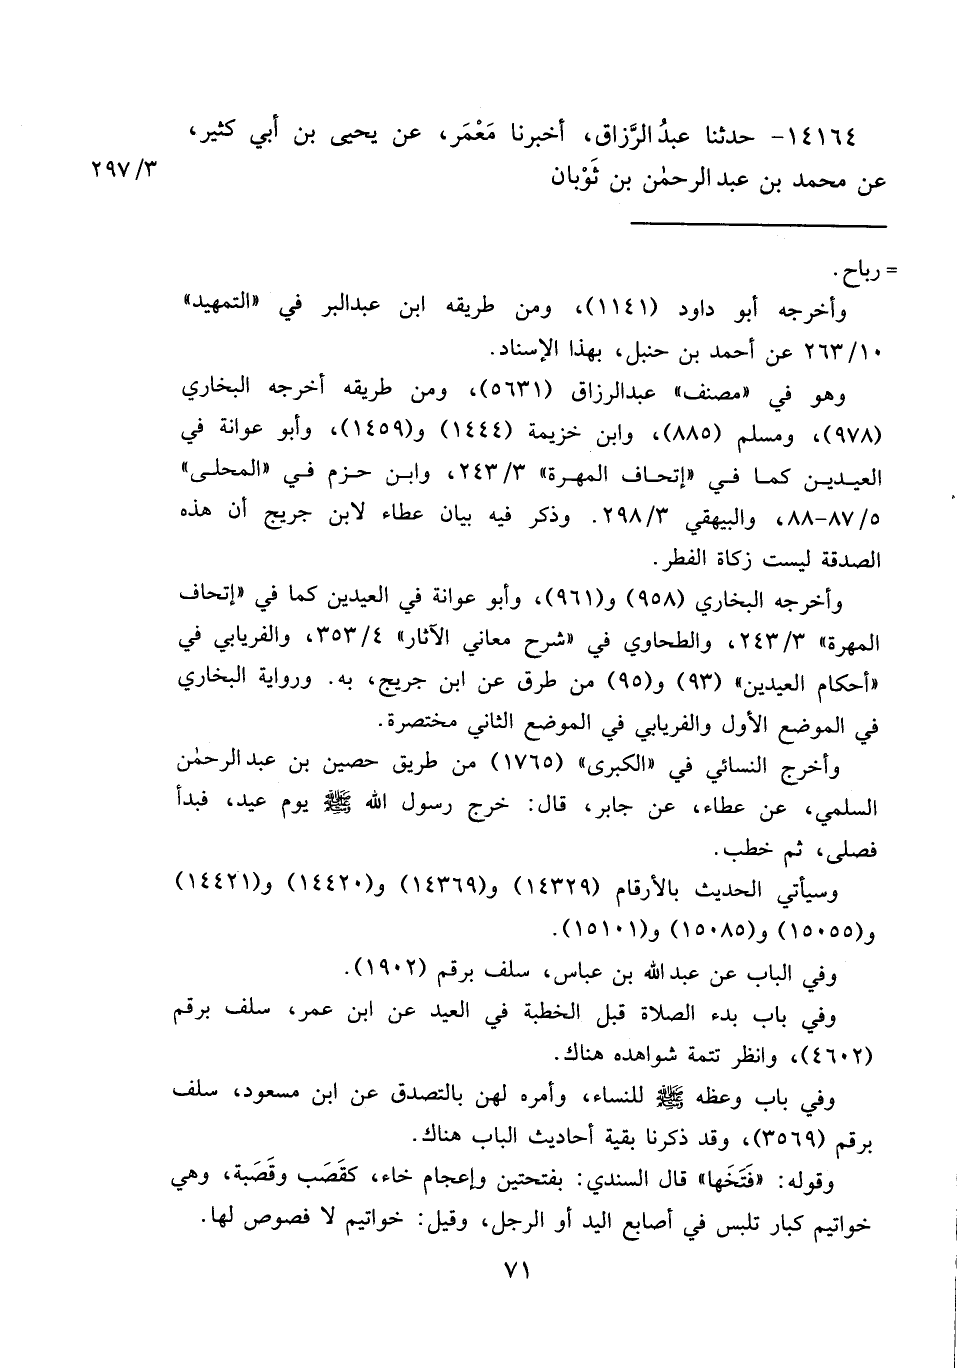 ١٤١٦٤- حدثنا عبدُ الرَّزاق، أخبرنا مَعْمَر، عن يحيى بن أبي كثير،
عن محمد بن عبد الرحمٰن بن ثَوْبان
٢٩٧/٣
= رباح.
وأخرجه أبو داود (١١٤١)، ومن طريقه ابن عبدالبر في «التمهيد»
٢٦٣/١٠ عن أحمد بن حنبل، بهذا الإسناد.
وهو في «مصنف» عبدالرزاق (٥٦٣١)، ومن طريقه أخرجه البخاري
(٩٧٨)، ومسلم (٨٨٥)، وابن خزيمة (١٤٤٤) و(١٤٥٩)، وأبو عوانة في
العيدين كما في «إتحاف المهرة» ٢٤٣/٣، وابن حزم في «المحلى»
٨٧/٥-٨٨، والبيهقي ٢٩٨/٣. وذكر فيه بيان عطاء لابن جريج أن هذه
الصدقة ليست زكاة الفطر.
وأخرجه البخاري (٩٥٨) و(٩٦١)، وأبو عوانة في العيدين كما في «إتحاف
المهرة» ٢٤٣/٣، والطحاوي في «شرح معاني الآثار» ٣٥٣/٤، والفريابي في
«أحكام العيدين» (٩٣) و(٩٥) من طرق عن ابن جريج، به. ورواية البخاري
في الموضع الأول والفريابي في الموضع الثاني مختصرة.
وأخرج النسائي في «الكبرى» (١٧٦٥) من طريق حصين بن عبد الرحمٰن
السلمي، عن عطاء، عن جابر، قال: خرج رسول الله ﷺ يوم عيد، فبدأ
فصلى، ثم خطب.
وسيأتي الحديث بالأرقام (١٤٣٢٩) و(١٤٣٦٩) و(١٤٤٢٠) و(١٤٤٢١)
و(١٥٠٥٥) و(١٥٠٨٥) و(١٥١٠١).
وفي الباب عن عبد الله بن عباس، سلف برقم (١٩٠٢).
وفي باب بدء الصلاة قبل الخطبة في العيد عن ابن عمر، سلف برقم
(٤٦٠٢)، وانظر تتمة شواهده هناك.
وفي باب وعظه ﷺ للنساء، وأمره لهن بالتصدق عن ابن مسعود، سلف
برقم (٣٥٦٩)، وقد ذكرنا بقية أحاديث الباب هناك.
وقوله: «فَتَخَها» قال السندي: بفتحتين وإعجام خاء، كقَصَب وقَصَبة، وهي
خواتيم كبار تلبس في أصابع اليد أو الرجل، وقيل: خواتيم لا فصوص لها.
٧١